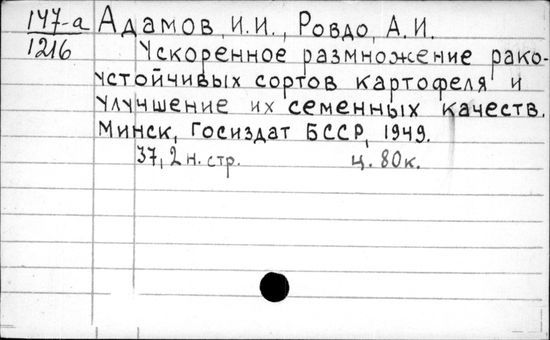 147-а Адамов, И.И., Ровдо, А.И.
1216 Ускоренное размножение рако-
устойчивых сортов картофеля и
улучшение их семенных качеств.
Минск, Госиздат БССР, 1949.
37, 2 н. стр. ц. 80к.